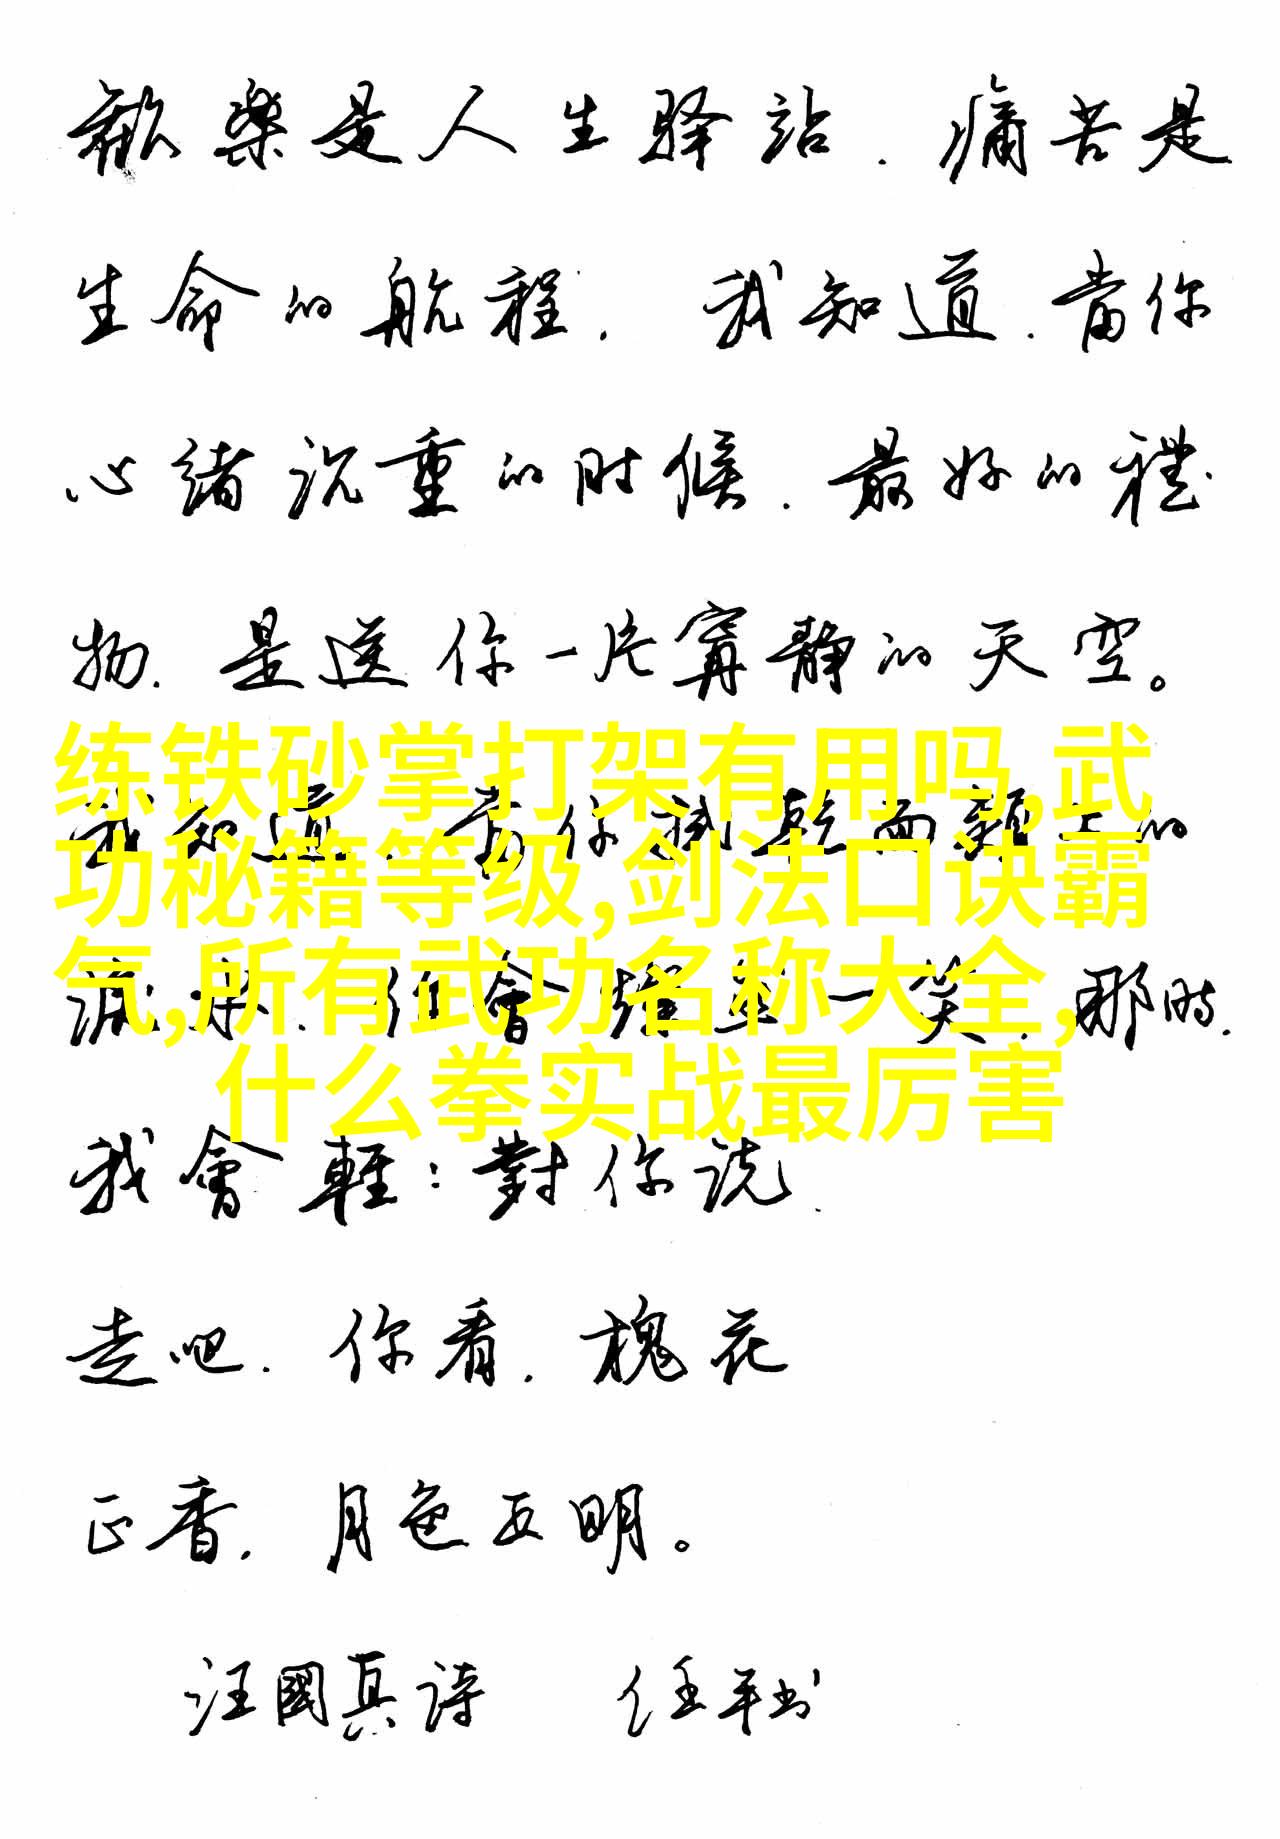 歡樂是人生驿站.痛苦是
生命的航程.我知道.當你
心緒沉重的时候.最好的禮
物.是送你一片寧静的天空。
练铁砂掌打架有用吗,武
我知道.當你
的
功秘籍等级,剑法口诀霸
气,所有武功名称大全,
會 一笑.那時.
什么拳实战最厉害
我會輕:對你说.
走吧.你看.槐花
正香.月色正明。
汪國真诗 任平书